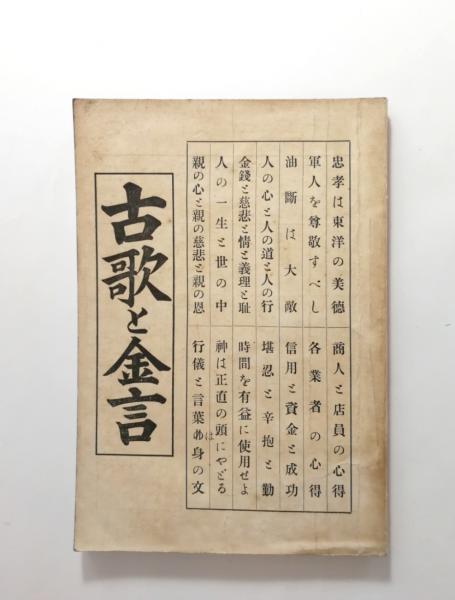 忠孝は東洋の美徳
軍人を尊敬すべし
油斷は大敵
人の心と人の道と人の行
金錢と慈悲と情と義理と耻
人の一生と世の中
親の心と親の慈悲と親の恩
商人と店員の心得
各業者の心得
信用と資金と成功
堪忍と辛抱と勤
時間を有益に使用せよ
神は正直の頭にやどる
行儀と言葉は身の文
古歌と金言